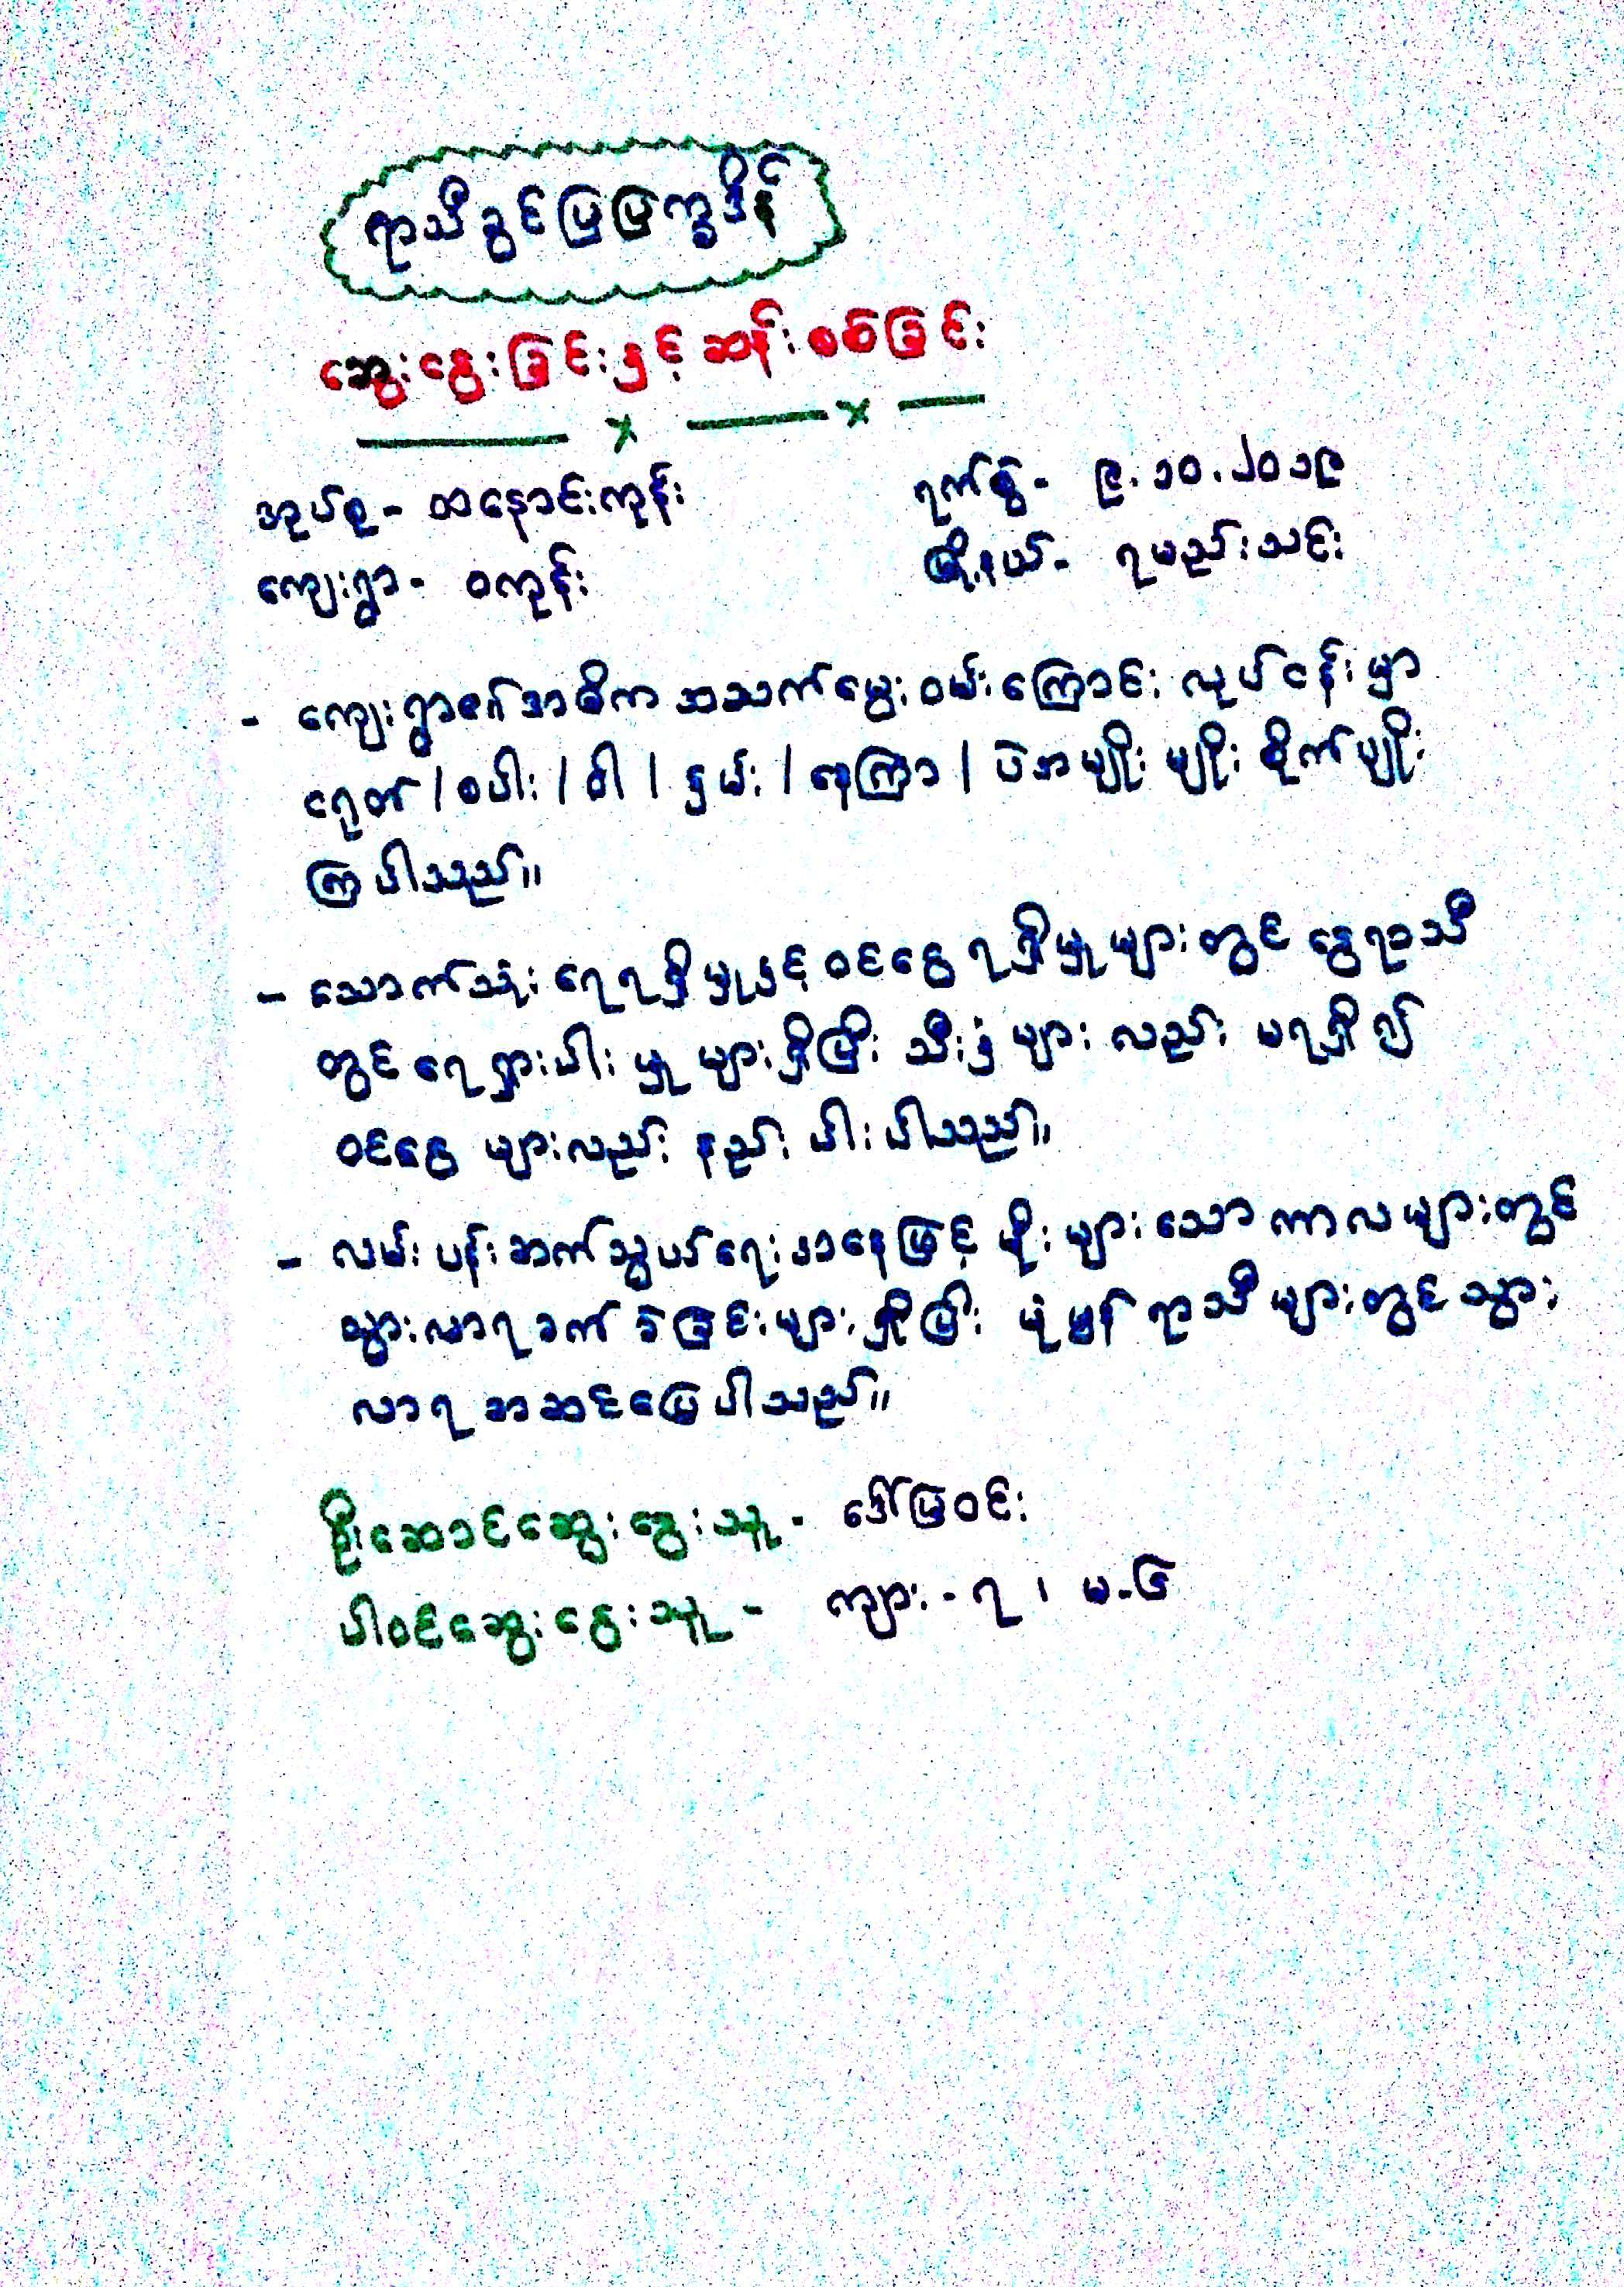 ရာသီခွင်ပြမြပြက္ခဒိန်
ဆွေးနွေးခြင်းနှင့်ဆန်းစစ်ခြင်း
အုပ်စု - ထနောင်းကုန်း ရက်စွဲ - ၉.၁၀.၂၀၁၉
ကျေးရွာ - ဝကုန်း မြို့နယ် - ရမည်းသင်း
- ကျေးရွာ၏အဓိက အသက်မွေးဝမ်းကြောင်း လုပ်ငန်းမှာ
ငရုတ် / စပါး / ဝါ / နှမ်း / နေကြာ / ပဲအမျိုးမျိုး စိုက်ပျိုး
ကြပါသည်။
- သောက်သုံးရေရရှိမှုနှင့် ဝင်ငွေရရှိမှုများတွင် နွေရာသီ
တွင် ရေရှားပါးမှုများရှိပြီး သီးနှံများလည်း မရရှိ၍
ဝင်ငွေများလည်း နည်းပါးပါသည်။
- လမ်းပန်းဆက်သွယ်ရေးအနေဖြင့် မိုးများသောကာလများတွင်
သွားလာရခက်ခဲခြင်းများရှိပြီး ပုံမှန်ရာသီများတွင်သွား
လာရ အဆင်ပြေပါသည်။
ဦးဆောင်ဆွေးနွေးသူ - ဒေါ်မြဝင်း
ပါဝင်ဆွေးနွေးသူ - ကျား - ၇ ၊ မ - ၆